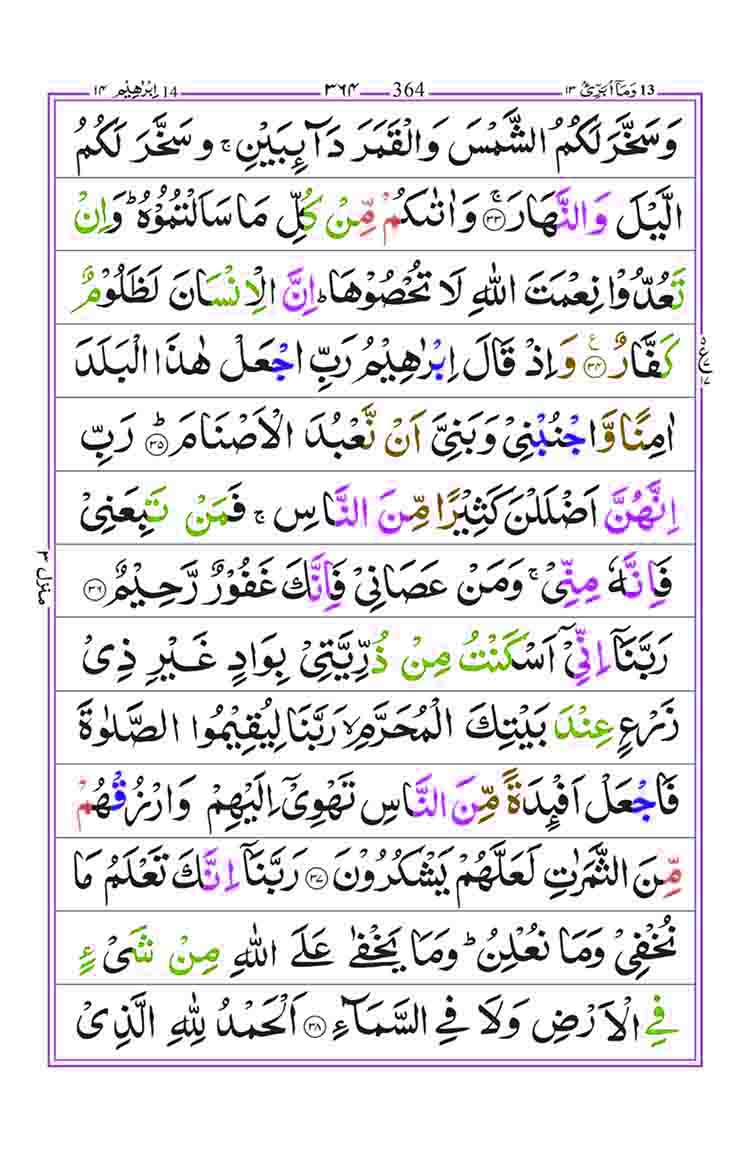 14 اِبْرٰهِيْم ١٤ 364 ٣٦٤ 13 وَمَآ اُبَرِّئُ ١٣
وَسَخَّرَ لَكُمُ الشَّمْسَ وَالْقَمَرَ دَآئِبَيْنِ ۚ وَسَخَّرَ لَكُمُ
الَّيْلَ وَالنَّهَارَ ۚ ﴿٣٣﴾ وَاٰتٰىكُمْ مِّنْ كُلِّ مَا سَاَلْتُمُوْهُ ؕ وَاِنْ
تَعُدُّوْا نِعْمَتَ اللّٰهِ لَا تُحْصُوْهَا ؕ اِنَّ الْاِنْسَانَ لَظَلُوْمٌ
كَفَّارٌ ﴿٣٤﴾ ع وَاِذْ قَالَ اِبْرٰهِيْمُ رَبِّ اجْعَلْ هٰذَا الْبَلَدَ
اٰمِنًا وَّاجْنُبْنِيْ وَبَنِيَّ اَنْ نَّعْبُدَ الْاَصْنَامَ ؕ ﴿٣٥﴾ رَبِّ
اِنَّهُنَّ اَضْلَلْنَ كَثِيْرًا مِّنَ النَّاسِ ۚ فَمَنْ تَبِعَنِيْ
فَاِنَّهٗ مِنِّيْ ۚ وَمَنْ عَصَانِيْ فَاِنَّكَ غَفُوْرٌ رَّحِيْمٌ ﴿٣٦﴾
رَبَّنَآ اِنِّيْٓ اَسْكَنْتُ مِنْ ذُرِّيَّتِيْ بِوَادٍ غَيْرِ ذِيْ
زَرْعٍ عِنْدَ بَيْتِكَ الْمُحَرَّمِ ۙ رَبَّنَا لِيُقِيْمُوا الصَّلٰوةَ
فَاجْعَلْ اَفْئِدَةً مِّنَ النَّاسِ تَهْوِيْٓ اِلَيْهِمْ وَارْزُقْهُمْ
مِّنَ الثَّمَرٰتِ لَعَلَّهُمْ يَشْكُرُوْنَ ﴿٣٧﴾ رَبَّنَآ اِنَّكَ تَعْلَمُ مَا
نُخْفِيْ وَمَا نُعْلِنُ ؕ وَمَا يَخْفٰى عَلَى اللّٰهِ مِنْ شَيْءٍ
فِي الْاَرْضِ وَلَا فِي السَّمَآءِ ﴿٣٨﴾ اَلْحَمْدُ لِلّٰهِ الَّذِيْ
منزل ٣